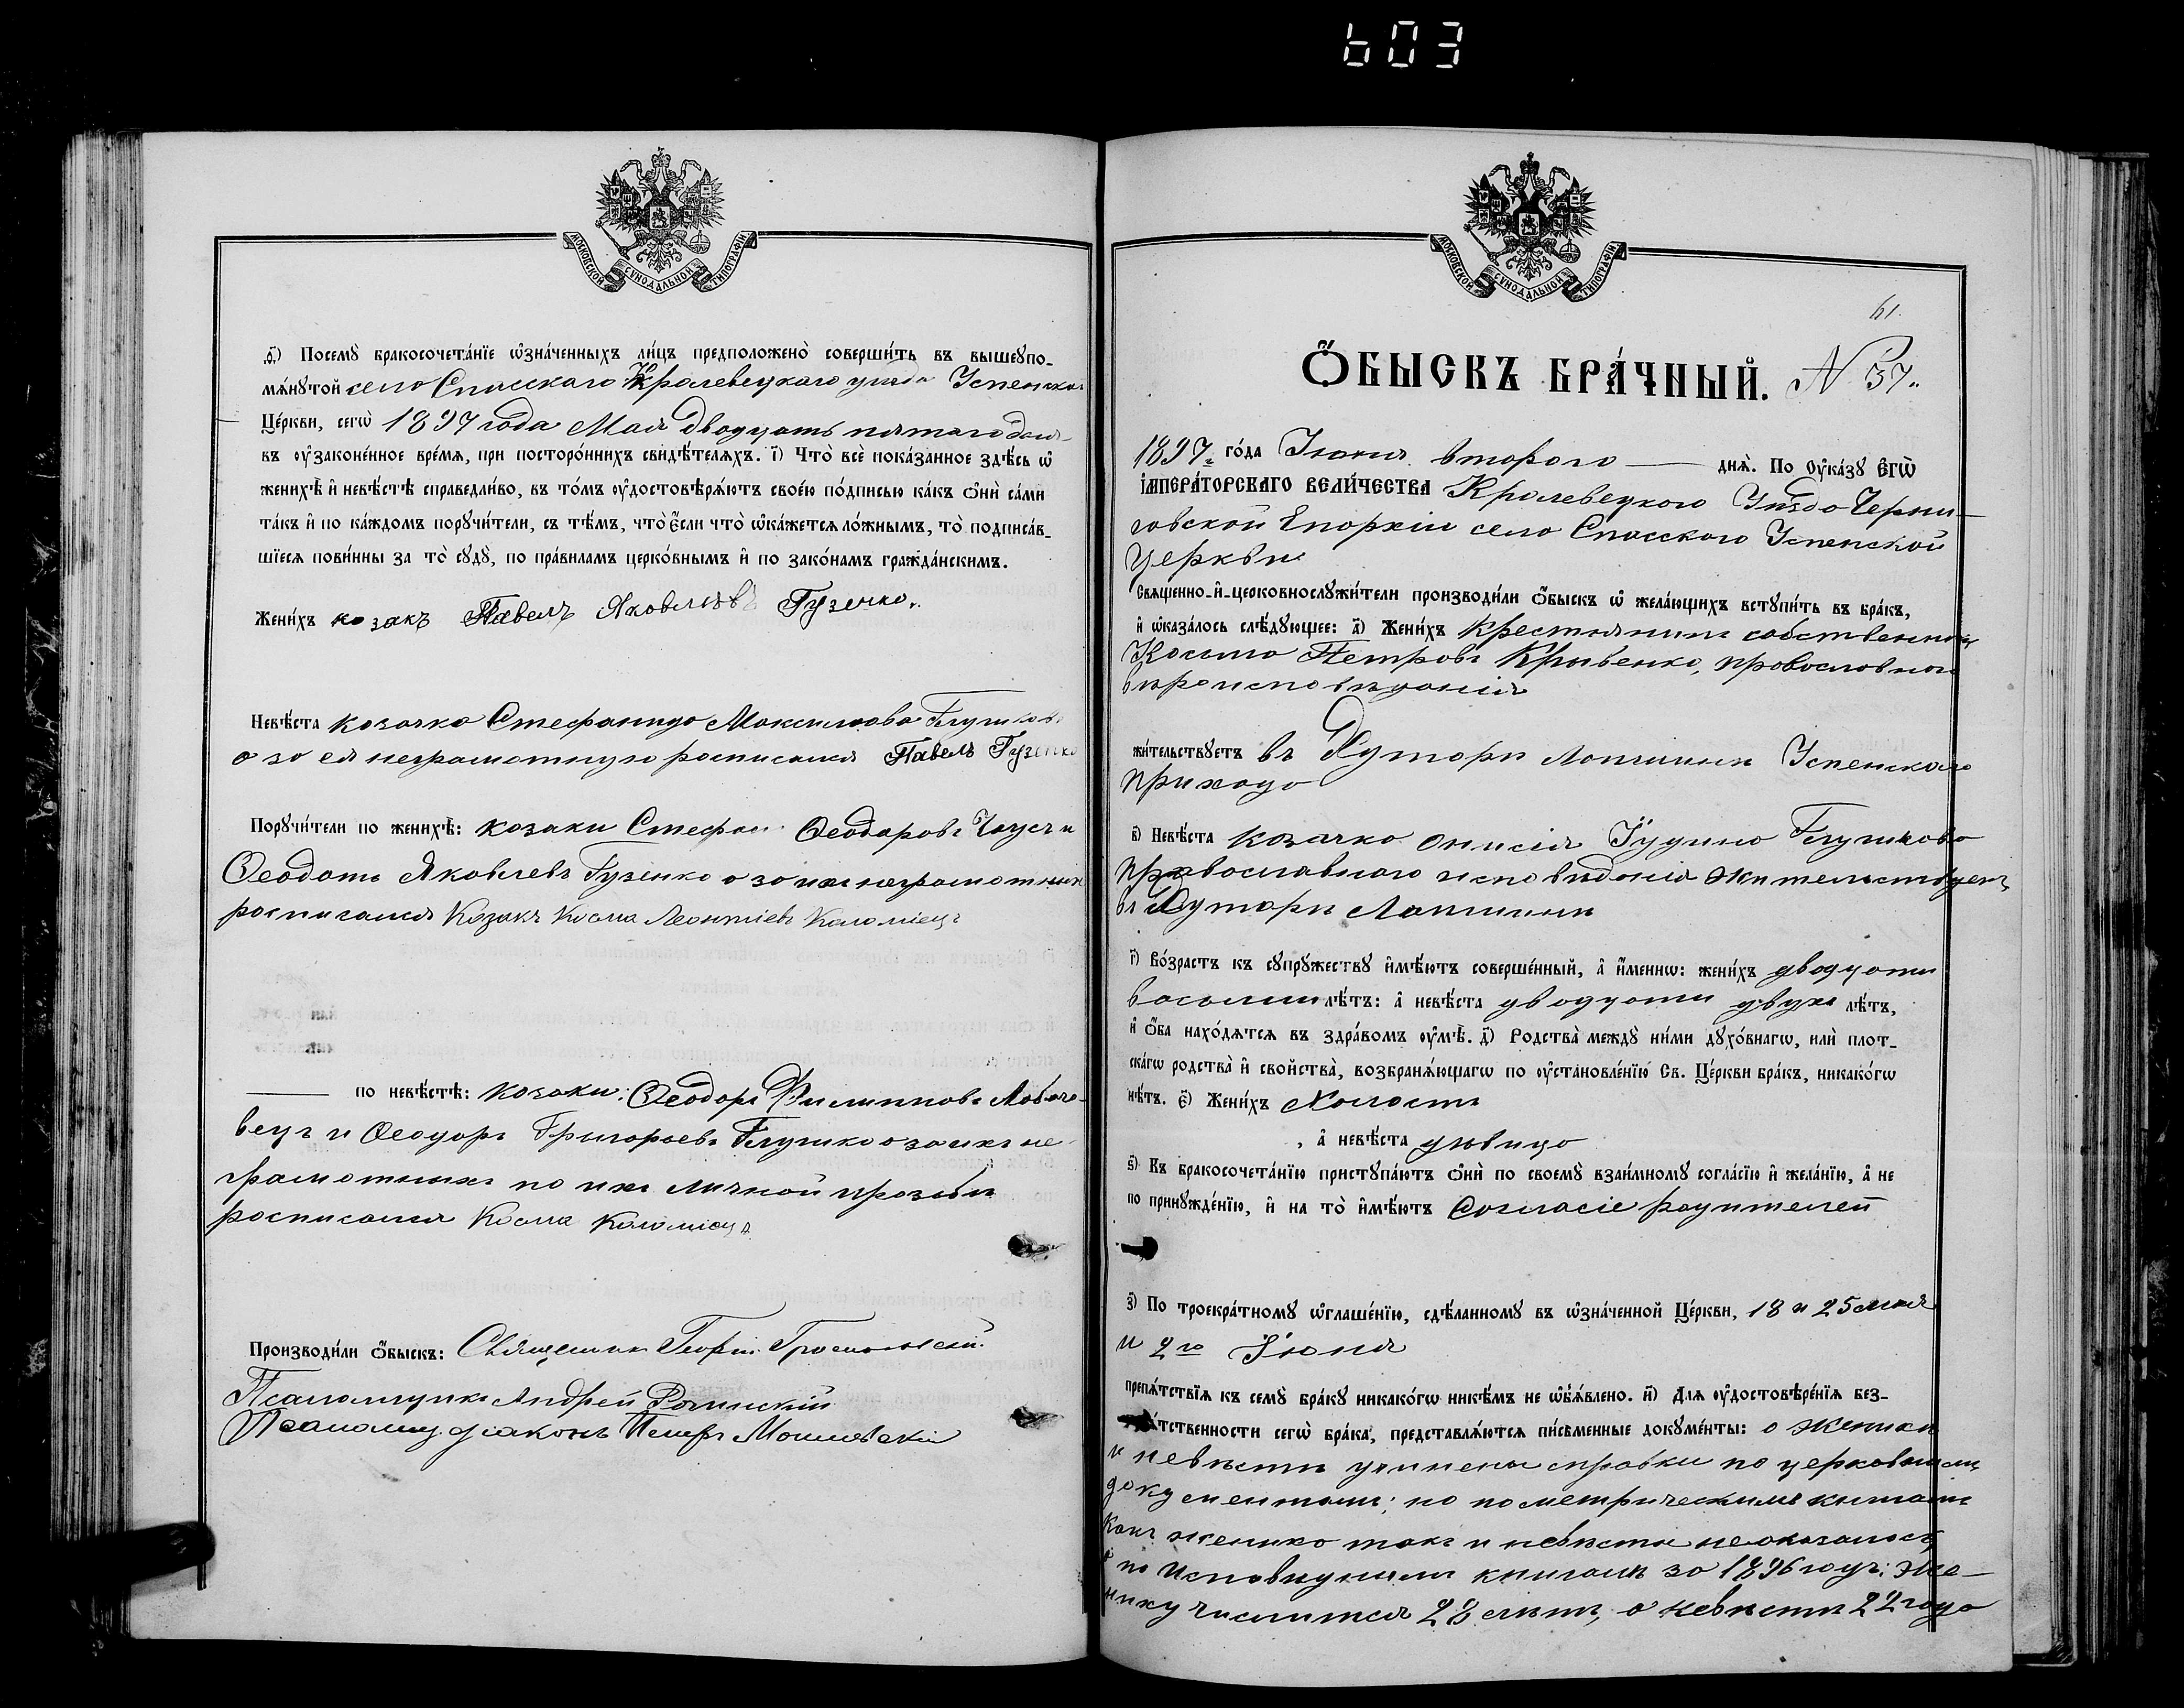 603
МОСКОВСКОЙ СѴНОДАЛЬНОЙ ТИПОГРАФІИ
ѳ҃) Посемꙋ бракосочета́нїе ѡ҆зна́ченныхъ ли́цъ предположено̀ соверши́ть въ вышеꙋпо-
мѧ́нꙋтой село Спасскаго Кролевецкаго уѣзда Успенской
Це́ркви, сегѡ̀ 1897 года Мая двадцать пятаго дня
въ ᲂу҆законе́нное вре́мѧ, при посторо́ннихъ свидѣ́телѧхъ. і҃) Что̀ всѐ пока́занное здѣ́сь ѡ҆
женихѣ̀ и҆ невѣ́стѣ справедли́во, въ то́мъ ᲂу҆достовѣрѧ́ютъ свое́ю по́дписью ка́къ ѻ҆нѝ са́ми
та́къ и҆ по ка́ждомъ порꙋчи́тели, съ тѣ́мъ, что̀ є҆́сли что̀ ѡ҆ка́жетсѧ ло́жнымъ, то̀ подписа́в-
шїесѧ пови́нны за то̀ сꙋдꙋ̀, по пра́виламъ церко́внымъ и҆ по зако́намъ гражда́нскимъ.
Жени́хъ козакъ Павелъ Яковлевъ Гузенко.
Невѣ́ста козачка Стефанида Максимова Глушкова
а за ея неграмотную росписался Павелъ Гузенко
Порꙋчи́тели по женихѣ̀: козаки Стефан Ѳеодоровъ и
Ѳеодотъ Яковлевъ Гузенко а за ихъ неграмотныхъ
росписался Козакъ Косма Леонтіевъ Коломіецъ
по невѣ́стѣ: козаки: Ѳеодоръ Филипповъ
и Ѳеодоръ Григорьевъ Глушко а за ихъ не-
грамотныхъ по ихъ личной прозьбѣ
росписался Косма Коломіецъ
Производи́ли ѻ҆́быскъ: Священникъ Георгій
Псаломщикъ Андрей
Псаломщ. діаконъ Петръ
МОСКОВСКОЙ СѴНОДАЛЬНОЙ ТИПОГРАФІИ
61.
Ѻ҆́БЫСКЪ БРА́ЧНЫЙ. N 37.
1897 го́да Іюня второго днѧ̀. По ᲂу҆ка́зꙋ Е҆гѡ̀
І҆МПЕРА́ТОРСКАГО ВЕЛИ́ЧЕСТВА Кролевецкого Уѣзда Черни-
говской Епархіи село Спасского Успенской
Церкви
Свѧще́нно-и҆-церковнослꙋжи́тели производи́ли ѻ҆́быскъ ѡ҆ жела́ющихъ встꙋпи́ть въ бра́къ,
и҆ ѡ҆каза́лось слѣ́дꙋющее: а҃) Жени́хъ Крестьянинъ собственникъ
Косма Петровъ Кривенко, православного
вѣроисповѣданія
жи́тельствꙋетъ въ Хуторѣ Лапшинѣ Успенскаго
прихода
в҃) Невѣ́ста козачка Онисія Іудина Глушкова
православнаго исповѣданія жительствуетъ
въ Хуторѣ Лапшинѣ
г҃) Во́зрастъ къ сꙋпрꙋ́жествꙋ и҆мѣ́ютъ соверше́нный, а҆ и҆́меннѡ: жени́хъ двадцати
восьми лѣ́тъ: а҆ невѣ́ста двадцати двухъ лѣ́тъ,
и҆ ѻ҆́ба нахо́дѧтсѧ въ здра́вомъ ᲂу҆мѣ̀. д҃) Родства̀ междꙋ̀ ни́ми дꙋхо́внагѡ, и҆лѝ плот-
ска́гѡ родства̀ и҆ свойства̀, возбранѧ́ющагѡ по ᲂу҆становле́нїю Св. Це́ркви бра́къ, никако́гѡ
нѣ́тъ. є҃) Жени́хъ Холостъ
, а҆ невѣ́ста дѣвица
ѕ҃) Къ бракосочета́нїю пристꙋпа́ютъ ѻ҆нѝ по своемꙋ̀ взаи́мномꙋ согла́сїю и҆ жела́нїю, а҆ не
по принꙋжде́нїю, и҆ на то̀ и҆мѣ́ютъ Согласіе родителей
з҃) По троекра́тномꙋ ѡ҆глаше́нїю, сдѣ́ланномꙋ въ ѡ҆зна́ченной Це́ркви, 18 и 25 мая
и 2го Іюня
препѧ́тствїѧ къ семꙋ̀ бра́кꙋ никако́гѡ никѣ́мъ не ѡ҆б̾ѧ́влено. и҃) Длѧ ᲂу҆достовѣре́нїѧ без-
ѧ́тственности сегѡ̀ бра́ка, представлѧ́ютсѧ пи́сьменные докꙋме́нты: о женихѣ
и невѣсти учинены справки по церковнымъ
документамъ; но по метрическимъ книгамъ
какъ жениха такъ и невѣсты не оказалось,
а по исповѣднымъ книгамъ за 1896 годъ: же-
ниху числится 28 лѣтъ, а невѣсти 22 года